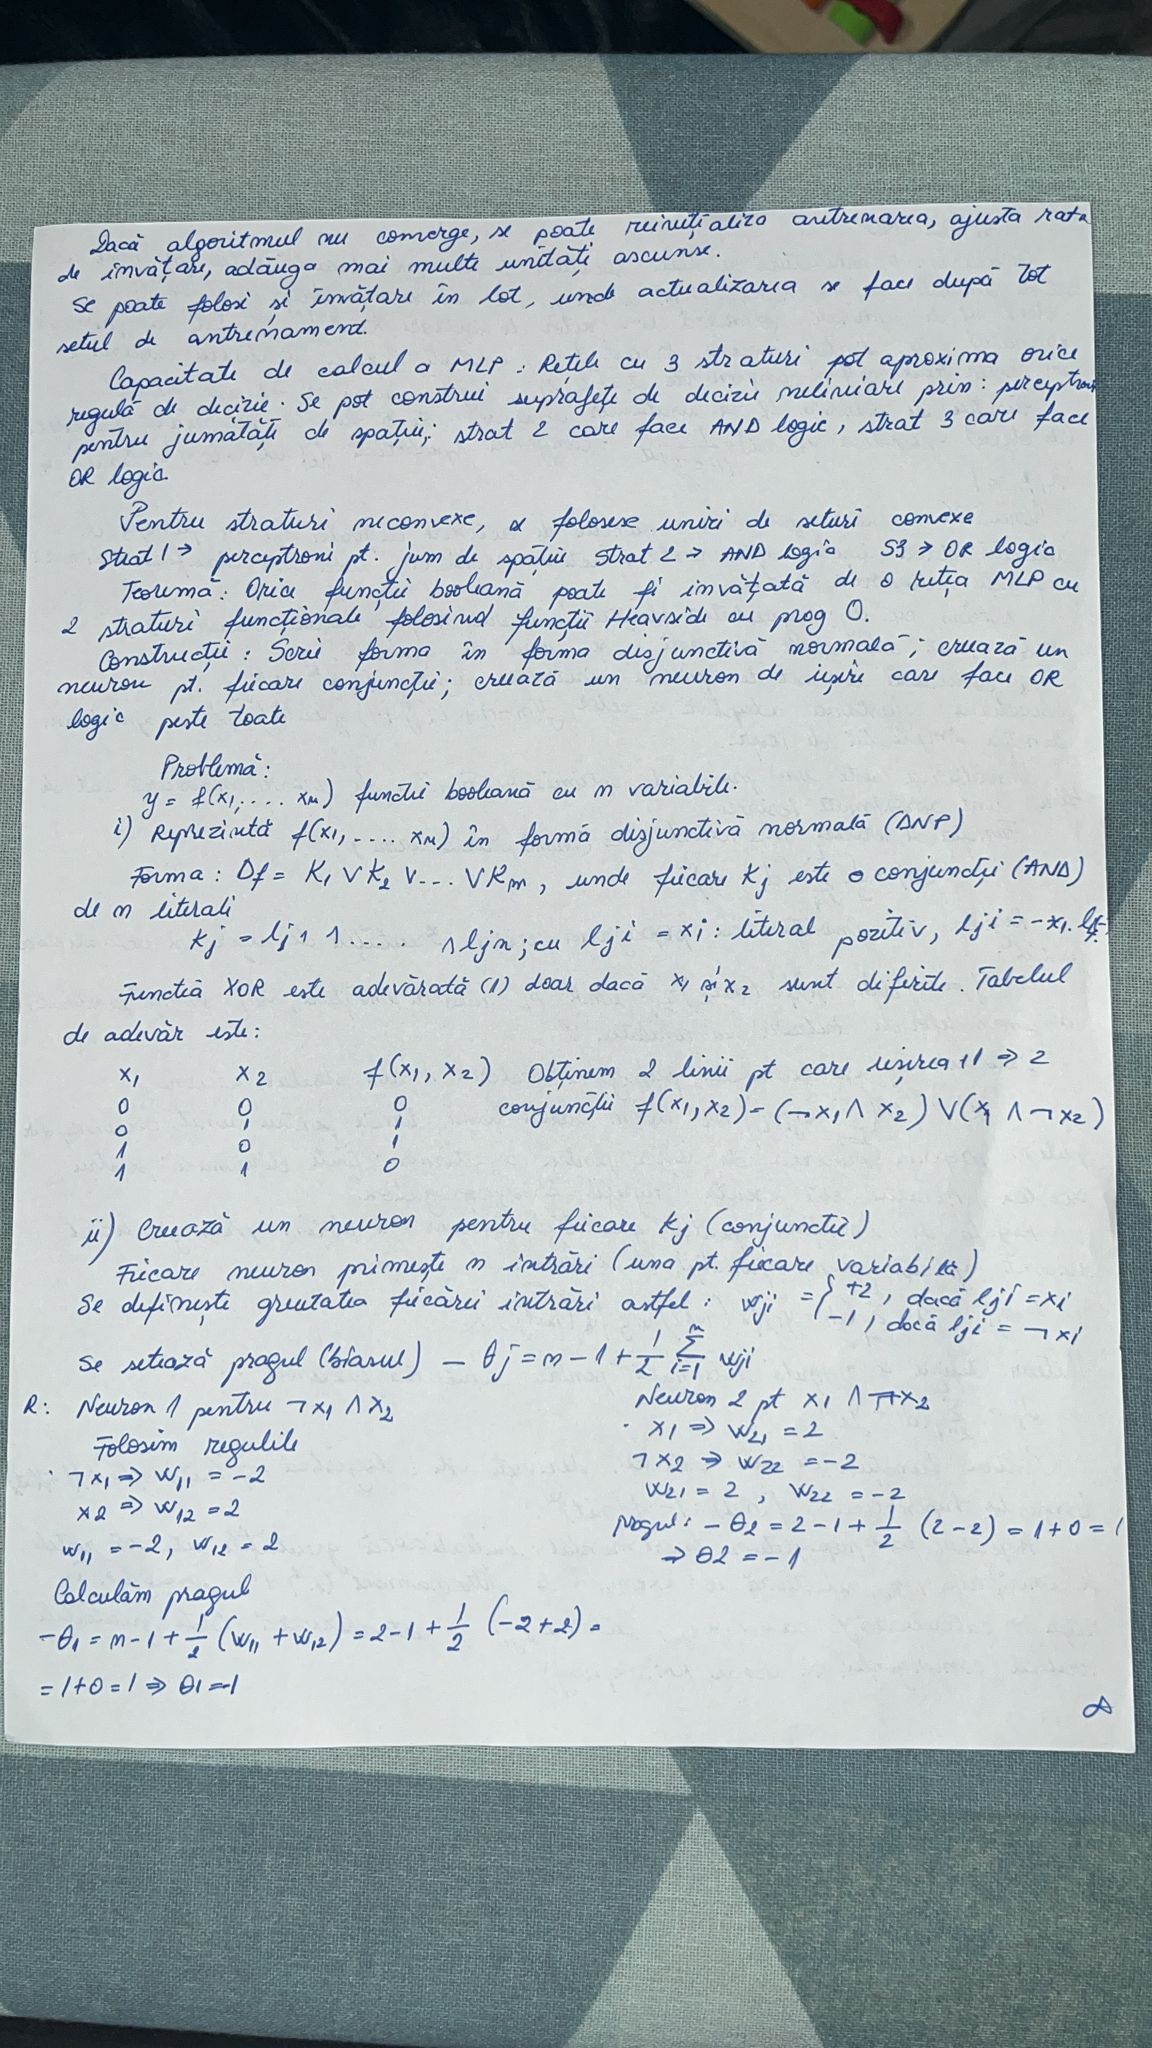 Dacă algoritmul nu converge, se poate reinițializa antrenarea, ajusta rata
de învățare, adăuga mai multe unități ascunse.
Se poate folosi și învățare în lot, unde actualizarea se face după tot
setul de antrenament.
Capacitate de calcul a MLP: Rețele cu 3 straturi pot aproxima orice
regulă de decizie. Se pot construi suprafețe de decizie neliniare prin: perceptroni
pentru jumătăți de spațiu; strat 2 care face AND logic, strat 3 care face
OR logic.
Pentru straturi neconvexe, se folosesc uniri de seturi convexe
Strat 1 → perceptroni pt. jum de spațiu Strat 2 → AND logic S3 → OR logic
Teoremă: Orice funcție booleană poate fi învățată de o rețea MLP cu
2 straturi funcționale folosind funcții Heavside cu prag 0.
Construcție: Scrie forma în forma disjunctivă normală; crează un
neuron pt. fiecare conjuncție; crează un neuron de ieșire care face OR
logic peste toate
Problemă:
y = f(x1, .... xn) funcție booleană cu n variabile.
i) Reprezintă f(x1, .... xn) în formă disjunctivă normală (DNF)
Forma: Df = K1 ∨ K2 ∨ ... ∨ Km, unde fiecare Kj este o conjuncție (AND)
de n literali
Kj = lj1 ∧ .... ∧ ljn; cu lji = xi: literal pozitiv, lji = -x1.
Funcția XOR este adevărată (1) doar dacă x1 și x2 sunt diferite. Tabelul
de adevăr este:
x1 x2 f(x1, x2) Obținem 2 linii pt care ieșirea 1 ⇒ 2
0 0 0 conjuncții f(x1,x2) = (¬x1 ∧ x2) ∨ (x1 ∧ ¬x2)
0 1 1
1 0 1
1 1 0
ii) Crează un neuron pentru fiecare Kj (conjuncție)
Fiecare neuron primește n intrări (una pt. fiecare variabilă)
Se definește greutatea fiecărei intrări astfel: wji = { +2, dacă lji = xi
-1, dacă lji = ¬xi
Se setează pragul (biasul) -θj = n-1 + 1/2 Σ(i=1, n) wji
R: Neuron 1 pentru ¬x1 ∧ x2
Folosim regulile
· ¬x1 ⇒ w11 = -2
x2 ⇒ w12 = 2
w11 = -2, w12 = 2
Calculăm pragul
-θ1 = n-1 + 1/2 (w11 + w12) = 2-1 + 1/2 (-2+2) =
= 1+0 = 1 ⇒ θ1 = -1
Neuron 2 pt x1 ∧ ¬x2
· x1 ⇒ w21 = 2
¬x2 → w22 = -2
w21 = 2, w22 = -2
pragul: -θ2 = 2-1 + 1/2 (2-2) = 1+0 = 1
⇒ θ2 = -1